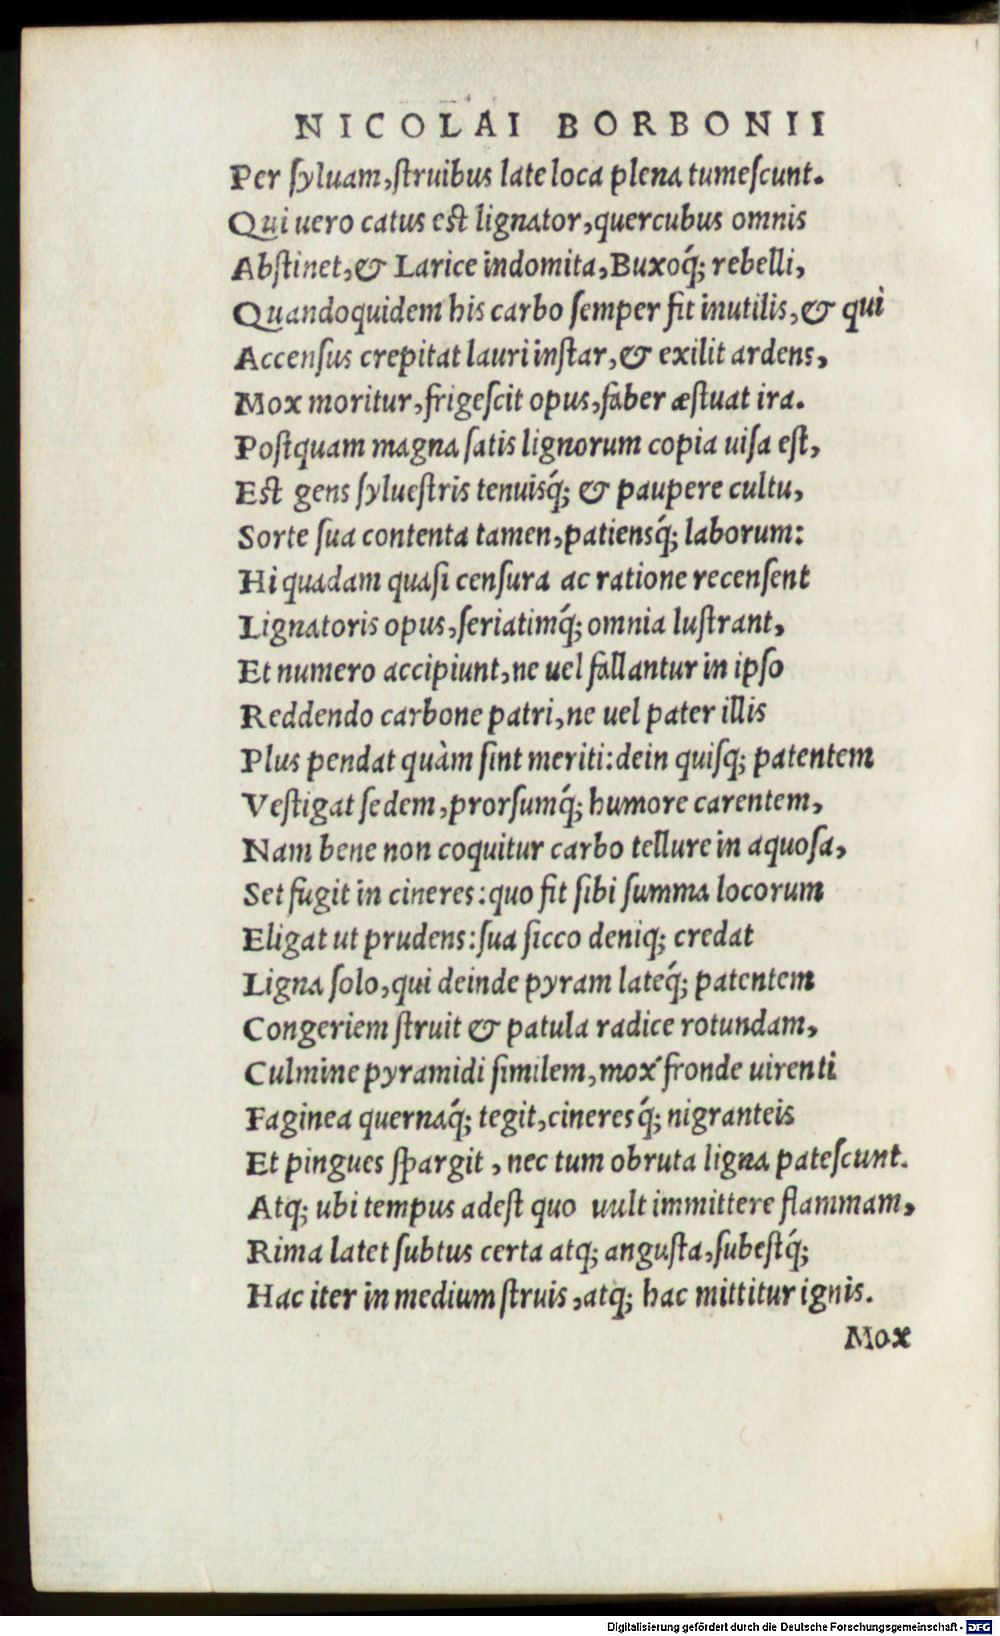 NICOLAI BORBONII
Per ſyluam, ſtruibus late loca plena tumeſcunt.
Qui uero catus eſt lignator, quercubus omnis
Abſtinet, & Larice indomita, Buxoq́; rebelli,
Quandoquidem his carbo ſemper fit inutilis, & qui
Accenſus crepitat lauri inſtar, & exilit ardens,
Mox moritur, frigeſcit opus, faber æſtuat ira.
Poſtquam magna ſatis lignorum copia uiſa eſt,
Eſt gens ſylueſtris tenuisq́; & paupere cultu,
Sorte ſua contenta tamen, patiensq́; laborum:
Hi quadam quaſi cenſura ac ratione recenſent
Lignatoris opus, ſeriatimq́; omnia luſtrant,
Et numero accipiunt, ne uel fallantur in ipſo
Reddendo carbone patri, ne uel pater illis
Plus pendat quàm ſint meriti: dein quiſq; patentem
Veſtigat ſedem, prorſumq́; humore carentem,
Nam bene non coquitur carbo tellure in aquoſa,
Set fugit in cineres: quo fit ſibi ſumma locorum
Eligat ut prudens: ſua ſicco deniq; credat
Ligna ſolo, qui deinde pyram lateq́; patentem
Congeriem ſtruit & patula radice rotundam,
Culmine pyramidi ſimilem, mox fronde uirenti
Faginea quernaq́; tegit, cineresq́; nigranteis
Et pingues ſpargit, nec tum obruta ligna pateſcunt.
Atq; ubi tempus adeſt quo uult immittere flammam,
Rima latet ſubtus certa atq; anguſta, ſubeſtq́;
Hac iter in medium ſtruis, atq; hac mittitur ignis.
Mox
Digitalisierung gefördert durch die Deutsche Forschungsgemeinschaft - DFG